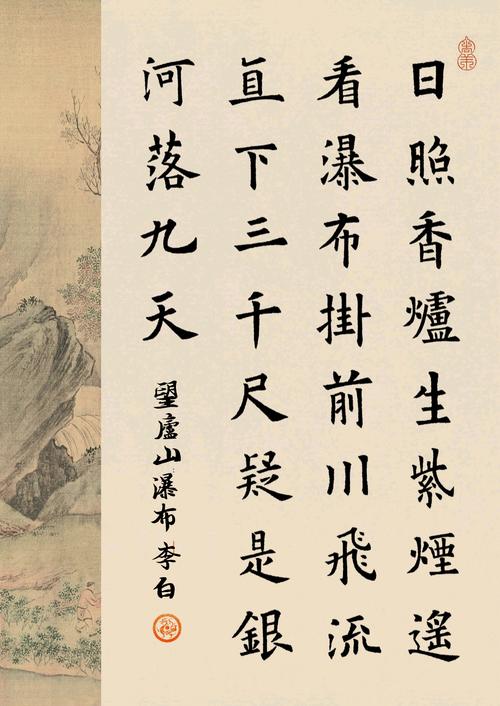 日照香爐生紫煙遥
看瀑布掛前川飛流
直下三千尺疑是銀
河落九天
望廬山瀑布 李白